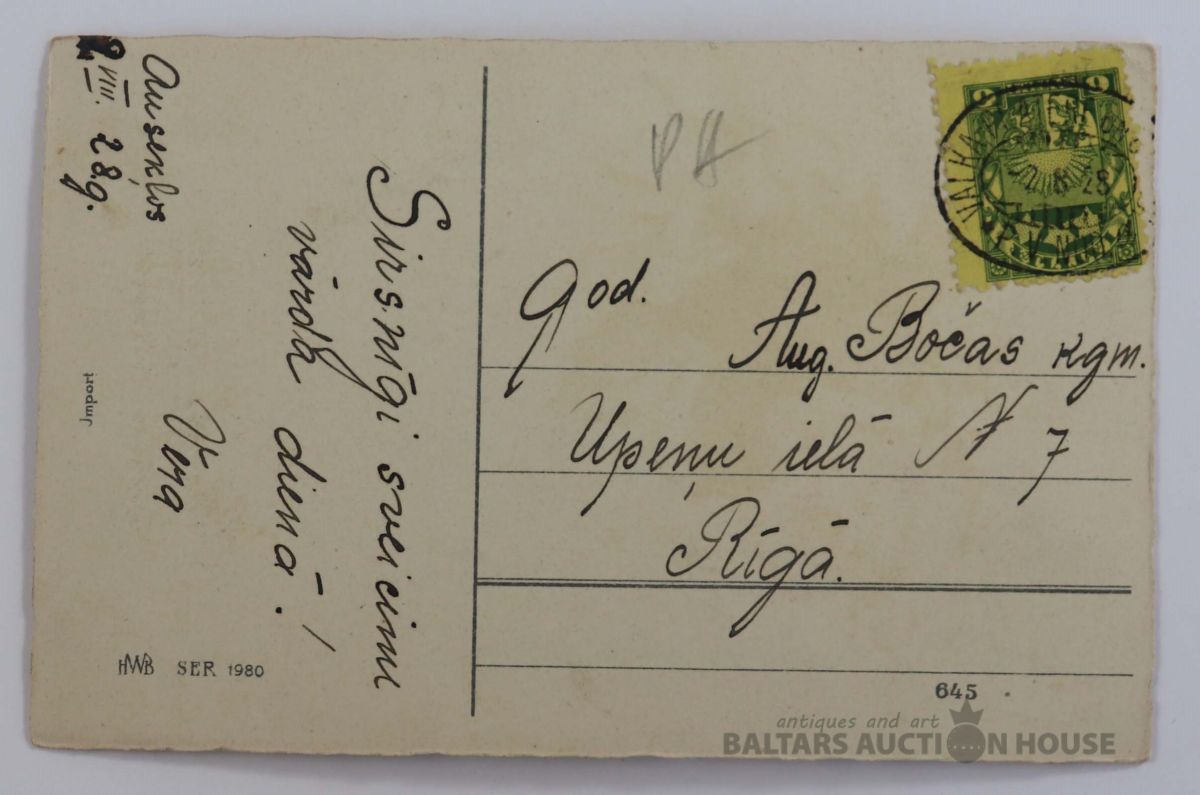 Ausekļos
2 VIII. 28.g.
Sirsnīgi sveicinu
vārda dienā!
Vera
Import
HWB SER 1980
P A
God. Aug. Bočas kgm.
Upeņu ielā № 7
Rīgā.
645
VALKA
28
LATVIJA
antiques and art
BALTARS AUCTION HOUSE